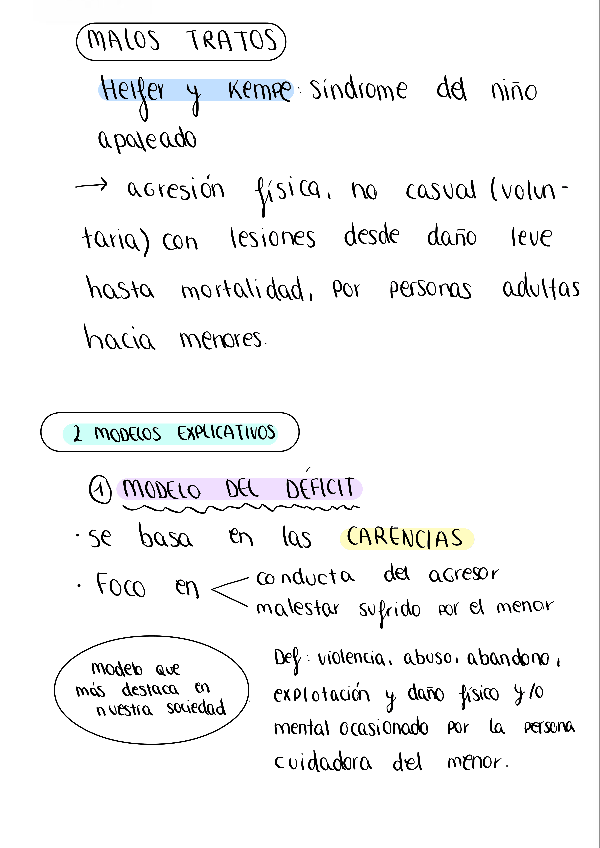 MALOS TRATOS
Helfer y Kempe: síndrome del niño
apaleado
→ agresión física, no casual (volun-
taria) con lesiones desde daño leve
hasta mortalidad, por personas adultas
hacia menores.
2 MODELOS EXPLICATIVOS
① MODELO DEL DÉFICIT
· se basa en las CARENCIAS
· Foco en
conducta del agresor
malestar sufrido por el menor
modelo que
más destaca en
nuestra sociedad
Def: violencia, abuso, abandono,
explotación y daño físico y/o
mental ocasionado por la persona
cuidadora del menor.